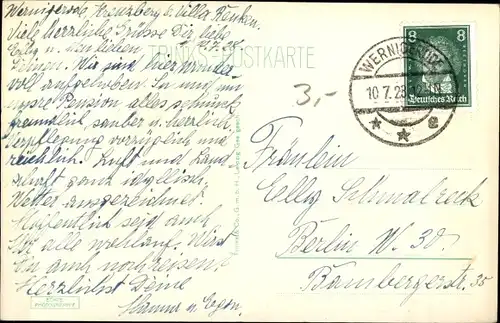 Wernigerode, Kreuzberg 6. Villa Runken.
Viele herzliche Grüsse Dir, liebe
Elly u. den lieben 9.7.28
Deinen. Wir sind hier wunder-
voll aufgehoben. In uns
unsre Pension alles schmuck
gemütlich sauber u. herrlich.
Verpflegung vorzüglich und
reichlich. Luft und Land-
schaft ganz idyllisch,
Wetter ausgezeichnet
Hoffentlich seid auch
Ihr alle wohlauf. Wirst
Du auch noch reisen?
Herzlichst Deine
Hanna u. Egon.
TRINKS-POSTKARTE
3,-
WERNIGERODE
10.7.28
* * e
8 8
Deutsches Reich
Fräulein
Elly Schmalzeck
Berlin W. 30.
Bambergerstr. 35
ECHTE
PHOTOGRAPHIE